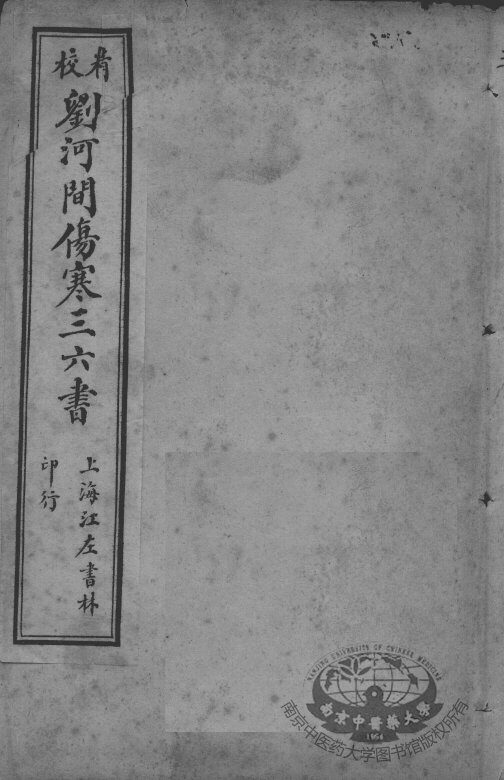 精校
劉河間傷寒三六書
上海江左書林
印行
NANJING UNIVERSITY OF CHINESE MEDICINE
南京中醫藥大學
1954
南京中医药大学图书馆版权所有